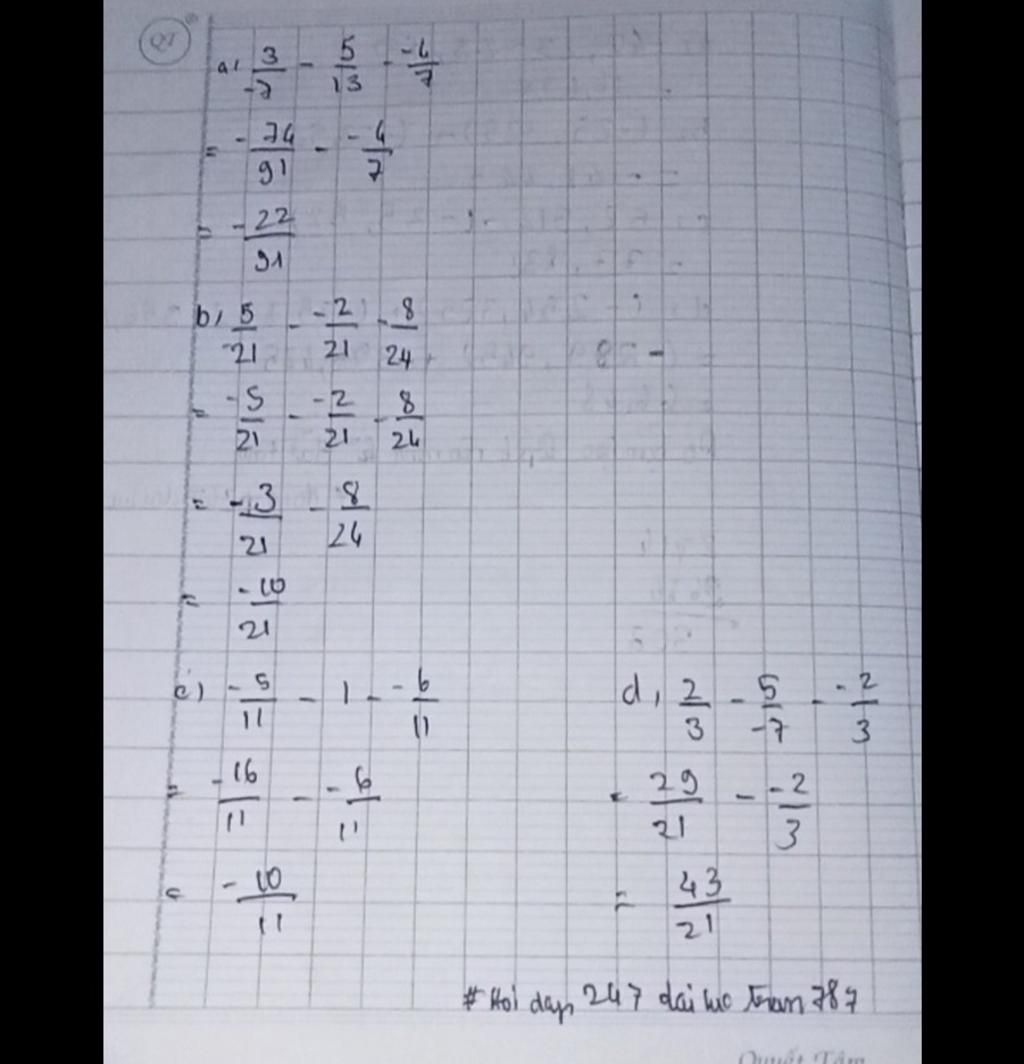 QT
a, 3/-7 - 5/13 - -4/7
= -74/91 - -4/7
= -22/91
b, 5/21 - -2/21 - 8/24
= -5/21 - -2/21 - 8/24
= -3/21 - 8/24
= -10/21
c) -5/11 - 1 - -6/11
= -16/11 - -6/11
= -10/11
d, 2/3 - 5/-7 - -2/3
= 29/21 - -2/3
= 43/21
# Hoi dap 247 dai luc tran 787
Quyết Tâm